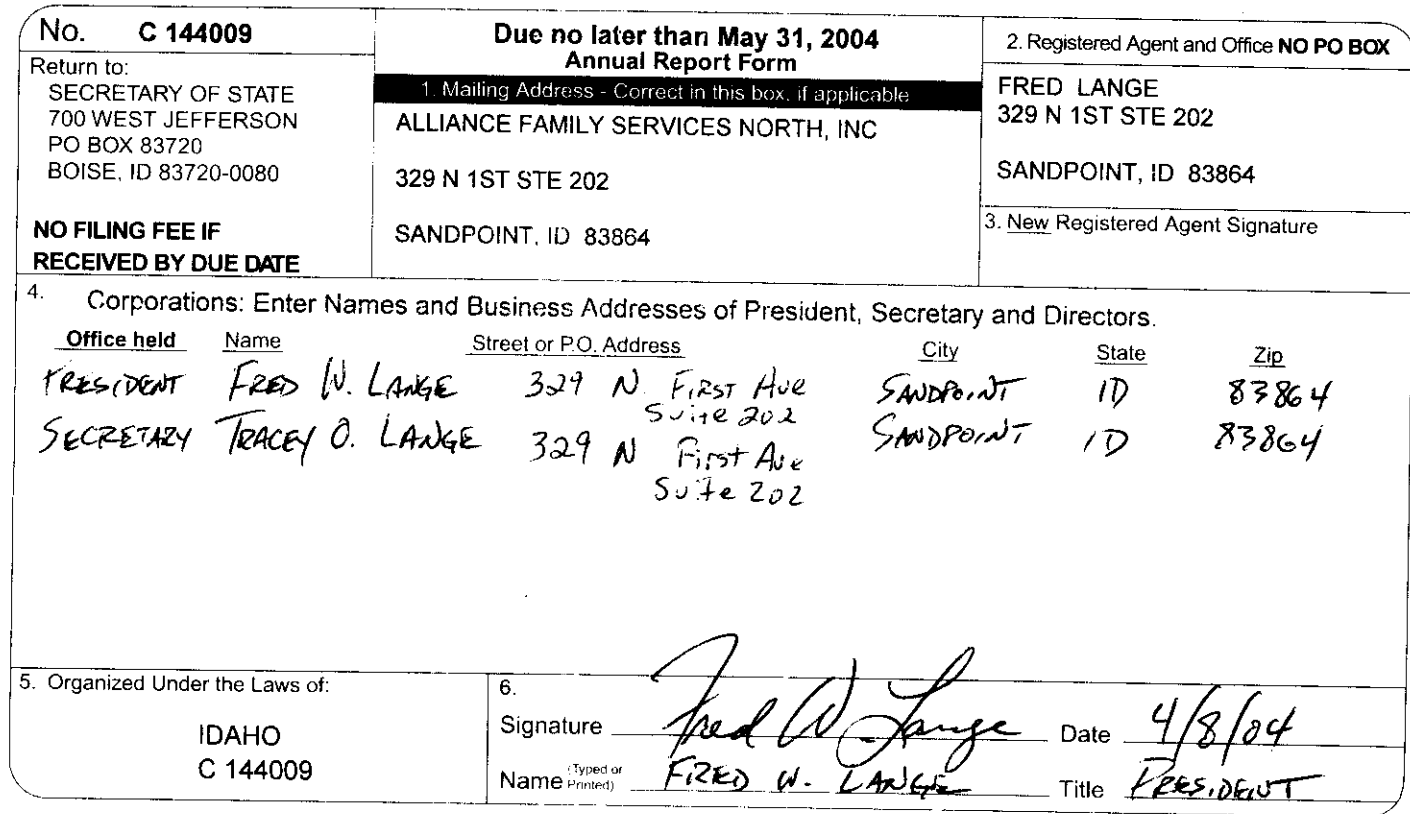 No. C 144009
Return to:
SECRETARY OF STATE
700 WEST JEFFERSON
PO BOX 83720
BOISE, ID 83720-0080
NO FILING FEE IF
RECEIVED BY DUE DATE
Due no later than May 31, 2004
Annual Report Form
1. Mailing Address - Correct in this box, if applicable
ALLIANCE FAMILY SERVICES NORTH, INC
329 N 1ST STE 202
SANDPOINT, ID 83864
2. Registered Agent and Office NO PO BOX
FRED LANGE
329 N 1ST STE 202
SANDPOINT, ID 83864
3. New Registered Agent Signature
4. Corporations: Enter Names and Business Addresses of President, Secretary and Directors.
Office held Name Street or P.O. Address City State Zip
PRESIDENT FRED W. LANGE 329 N. FIRST Ave SANDPOINT ID 83864
Suite 202
SECRETARY TRACEY O. LANGE 329 N First Ave SANDPOINT ID 83864
Suite 202
5. Organized Under the Laws of:
IDAHO
C 144009
6.
Signature Fred W Lange Date 4/8/04
Name (Typed or Printed) FRED W. LANGE Title PRESIDENT